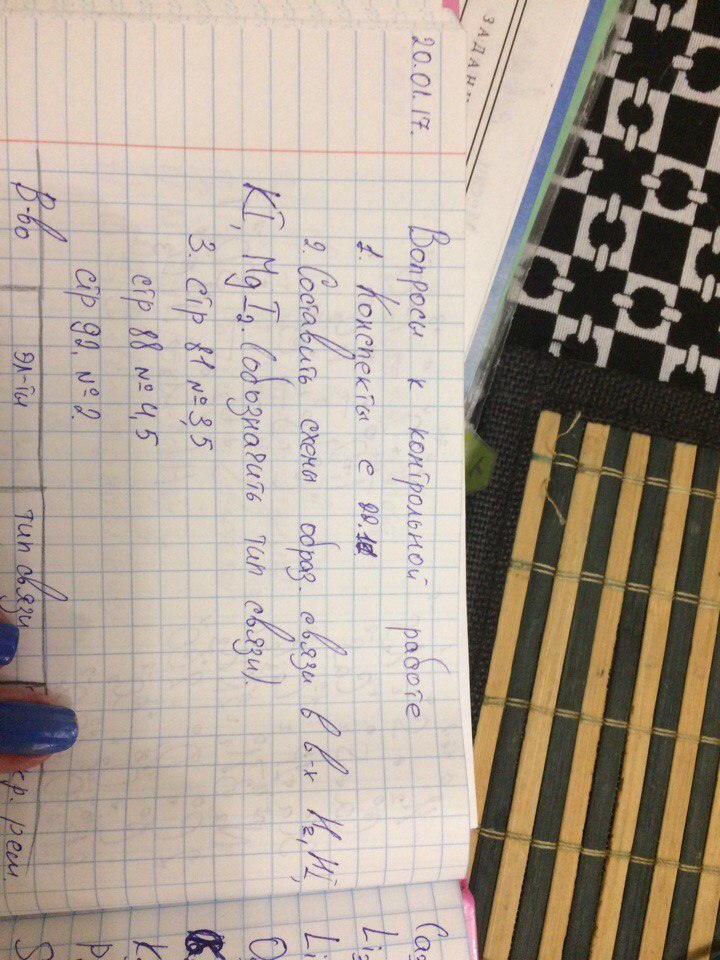 ЗАДАН
20.01.17.
Вопросы к контрольной работе
1. Конспекты с 22.11
2. Составить схемы образ. связи в в-х H₂, HI,
KI, MgI₂. (обозначить тип связи).
3. стр 81 №3,5
стр 88 №4,5
стр 92, №2.
В-во эл-ты тип связи кр. реш.